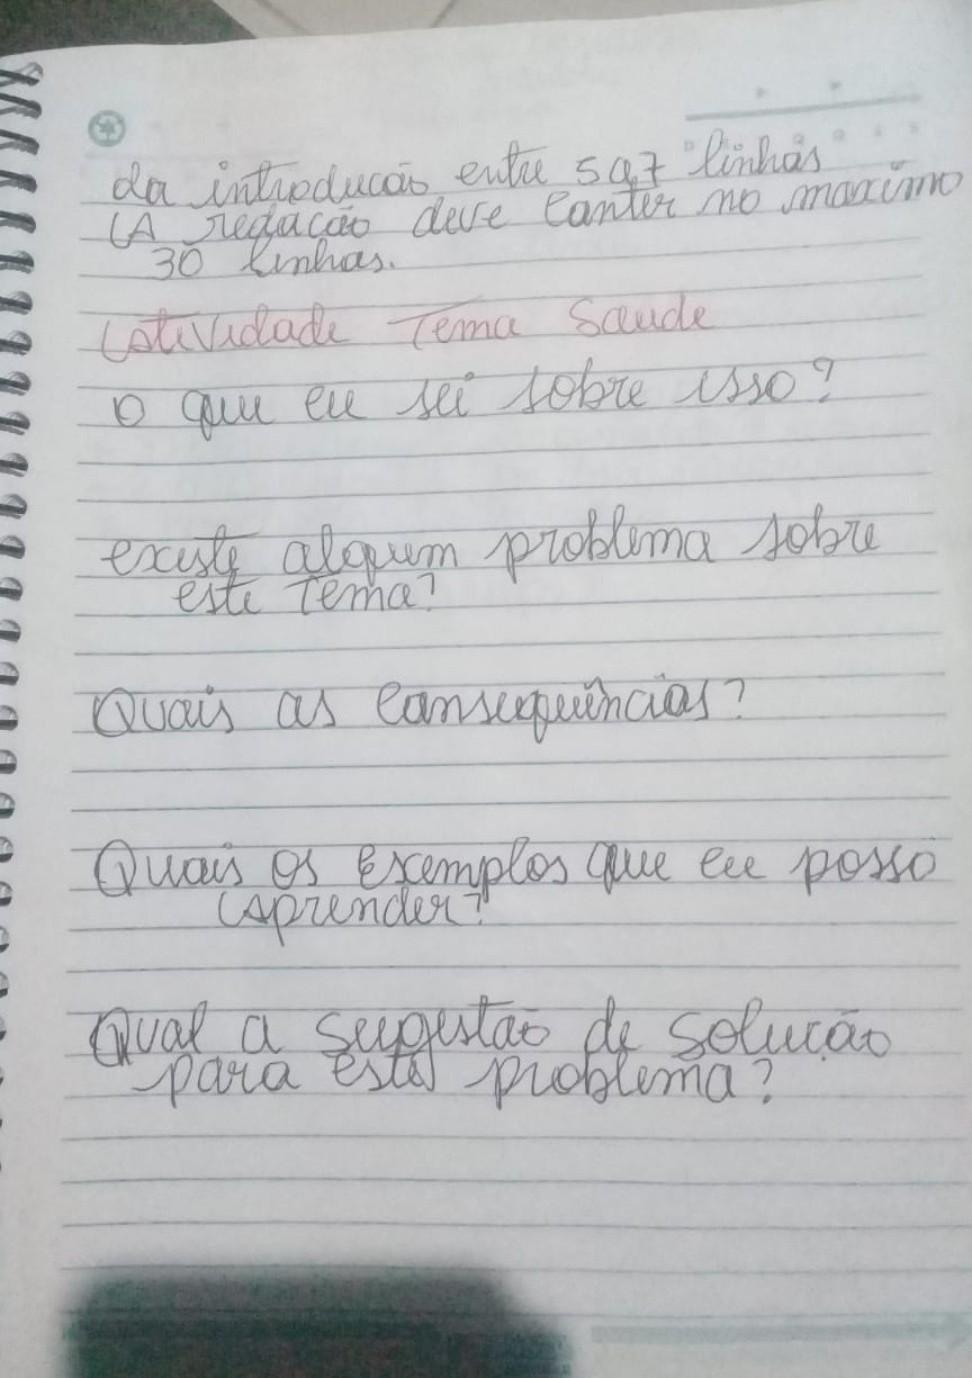 da introducão entre 5 a 7 linhas
A redação deve conter no maximo
30 linhas.
Atividade Tema Saude
o que eu sei sobre isso?
existe algum problema sobre
este Tema?
Quais as consequências?
Quais os exemplos que eu posso
Aprender?
Qual a sugestão de solução
para este problema?